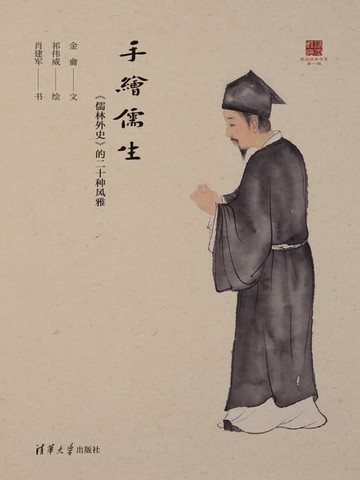 手繪儒生
《儒林外史》的二十种风雅
金俞——文
祁伟威——绘
肖建军——书
清华大学出版社